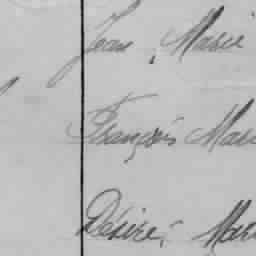 Jean, Marie
François Mar
Désiré, Mar